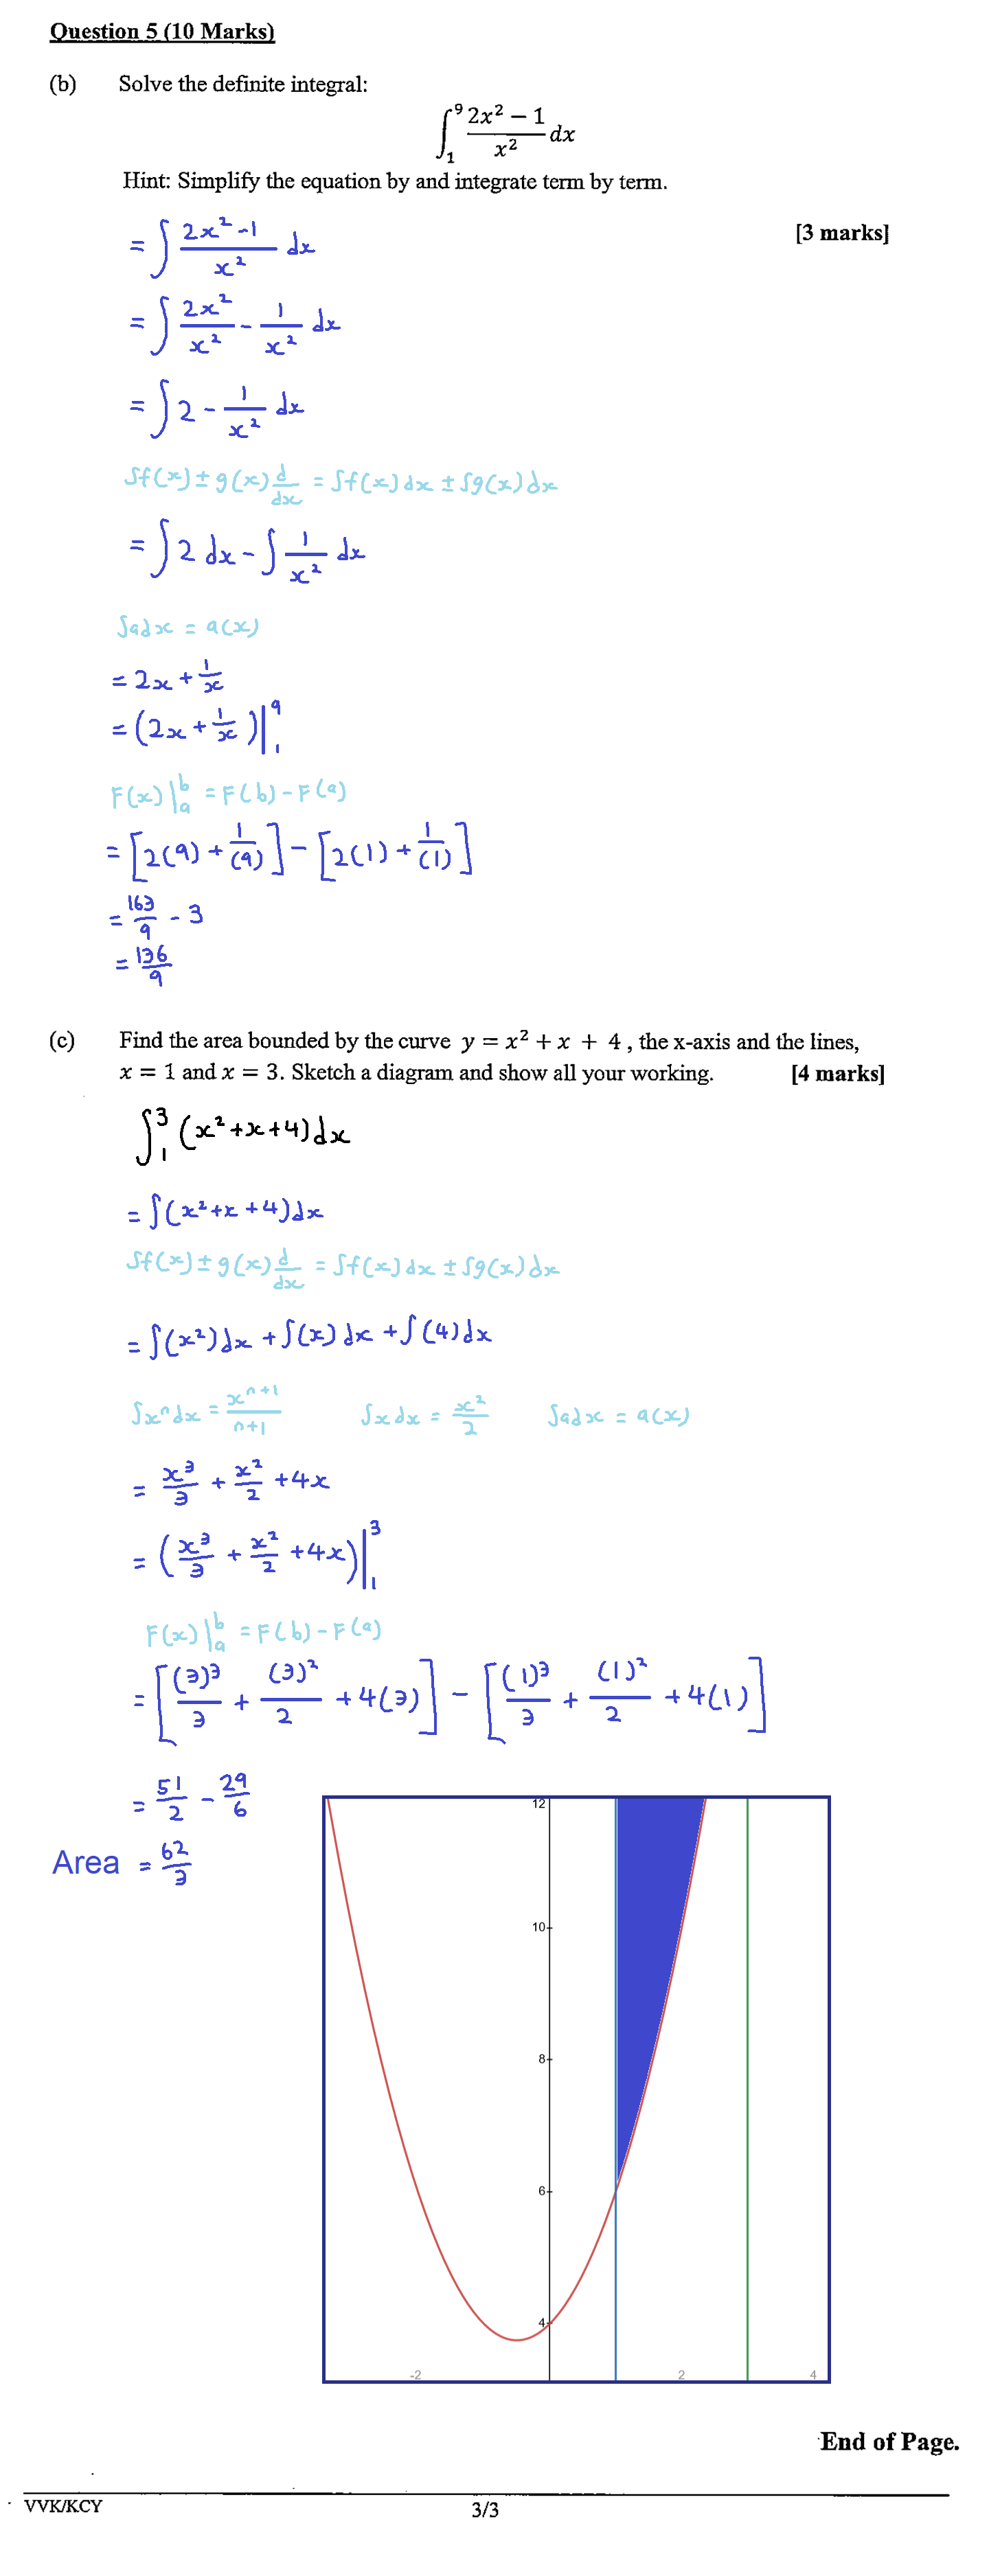 Question 5 (10 Marks)
(b) Solve the definite integral:
∫₁⁹ (2x² − 1)/x² dx
Hint: Simplify the equation by and integrate term by term.
[3 marks]
= ∫ (2x² -1)/x² dx
= ∫ 2x²/x² - 1/x² dx
= ∫ 2 - 1/x² dx
∫f(x) ± g(x) d/dx = ∫f(x) dx ± ∫g(x) dx
= ∫ 2 dx - ∫ 1/x² dx
∫a dx = a(x)
= 2x + 1/x
= (2x + 1/x)|₁⁹
F(x)|ₐᵇ = F(b) - F(a)
= [2(9) + 1/(9)] - [2(1) + 1/(1)]
= 163/9 - 3
= 136/9
(c) Find the area bounded by the curve y = x² + x + 4 , the x-axis and the lines,
x = 1 and x = 3. Sketch a diagram and show all your working. [4 marks]
∫₁³ (x²+x+4)dx
= ∫(x²+x+4)dx
∫f(x) ± g(x) d/dx = ∫f(x) dx ± ∫g(x) dx
= ∫(x²)dx + ∫(x)dx + ∫(4)dx
∫xⁿdx = xⁿ⁺¹/n+1 ∫x dx = x²/2 ∫a dx = a(x)
= x³/3 + x²/2 + 4x
= (x³/3 + x²/2 + 4x)|₁³
F(x)|ₐᵇ = F(b) - F(a)
= [(3)³/3 + (3)²/2 + 4(3)] - [(1)³/3 + (1)²/2 + 4(1)]
= 51/2 - 29/6
Area = 62/3
12
10
8
6
4
-2 2 4
End of Page.
VVK/KCY 3/3